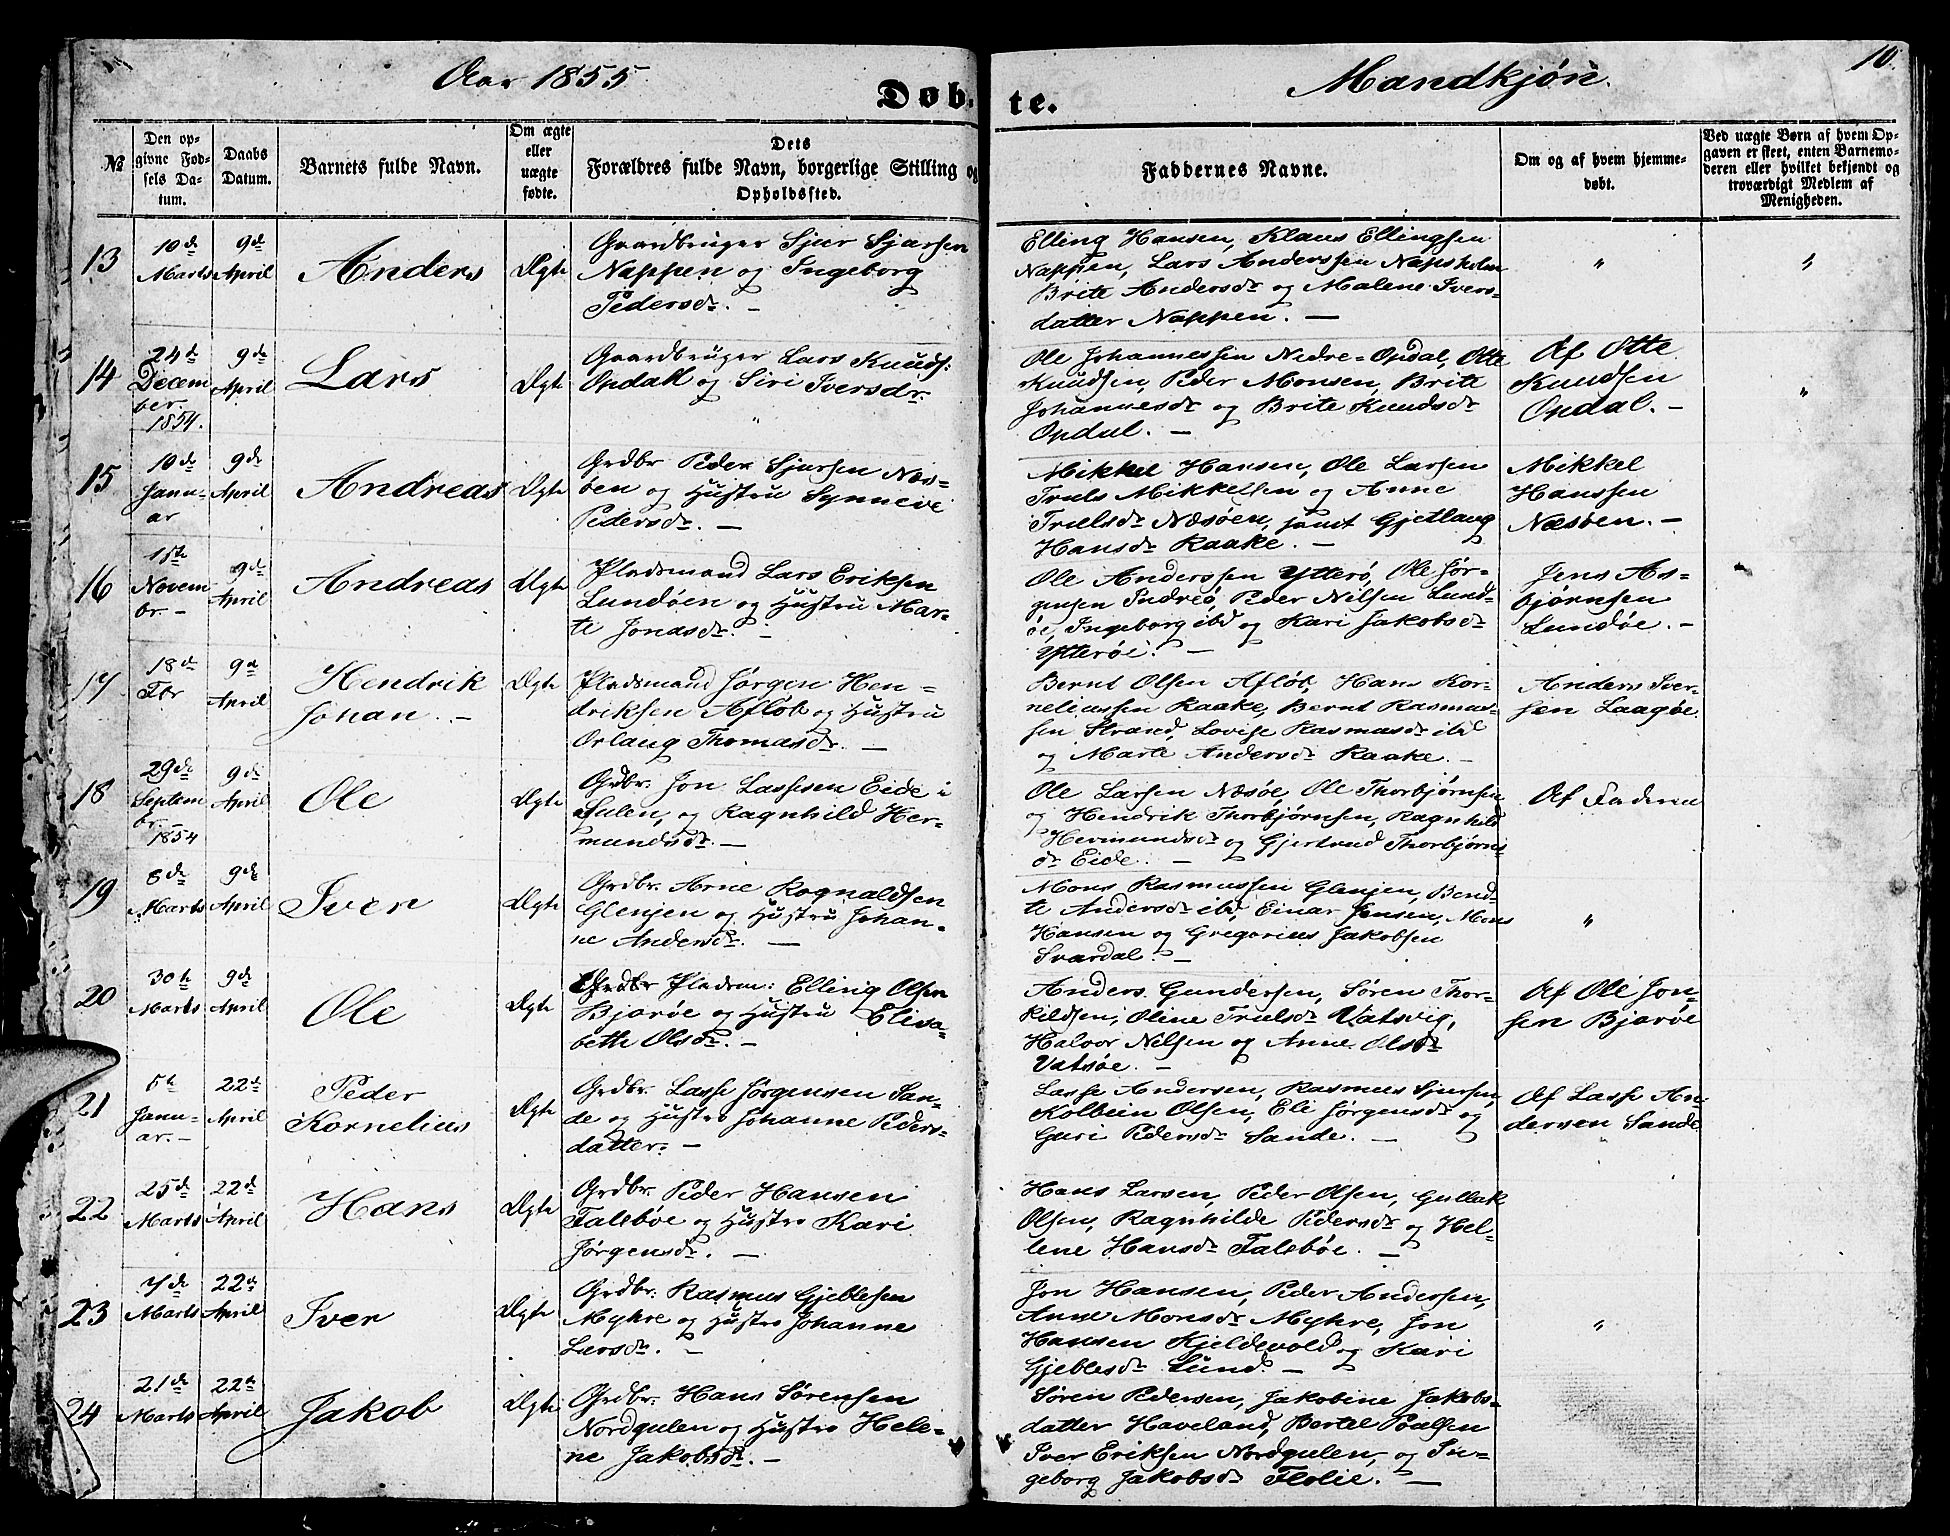 Aar 1855
Døb-
te.
Mandkjøn.
10.
№
Den op-
givne Fød-
sels Da-
tum.
Daabs
Datum.
Barnets fulde Navn.
Om ægte
eller
uægte
fødte.
Dets
Forældres fulde Navn, borgerlige Stilling og
Opholdssted.
Faddernes Navne.
Om og af hvem hjemme-
døbt.
Ved uægte Børn af hvem Op-
gaven er skeet, enten Barnemo-
deren eller hvilket bekjendt og
troværdigt Medlem af
Menigheden.
13
10de
Marts
9de
April
Anders
Ægte
Gaardbruger Sjur Sjursen
Nappen og Ingeborg
Pedersdr. –
Elling Hansen, Klaus Ellingsen
Nappen, Lars Anderssen Napsholm
Brite Andersdr og Malene Ivers-
datter Nappen. –
"
"
14
24de
Decem
ber.
1854.
9de
April
Lars
Ægte
Gaardbruger Lars Knuds:
Opdal og Siri Iversdr.
Ole Johannessen Nedre-Opdal, Otte
Knudsen, Peder Monsen, Brite
Johannesdr og Brite Knudsdr
Opdal. –
Af Otte
Knudsen
Opdal. –
"
15
10de
Janu-
ar
9de
April
Andreas
Ægte
Grdbr Peder Sjursen Næs-
øen og Hustru Synneve
Pedersdr. –
Mikkel Hansen, Ole Larsen
Truls Mikkelsen og Anne
Trulsdr Næsøen, samt Gjetlaug
Hansdr Raake. –
Mikkel
Hanssen
Næsøen. –
16
15de
Novem
br. –
9de
April
Andreas
Ægte
Pladsmand Lars Eriksen
Lundøen og Hustru Mar-
te Jonasdr. –
Ole Anderssen Ytterø, Ole Jør-
gensen Indreø, Peder Nilsen Lund-
øe, Ingeborg ibd og Kari Jakobsdr
Ytterøe. –
Jens As-
bjørnsen
Lundøe. –
17
18de
Fbr
9de
April
Hendrik
Johan. –
Ægte
Pladsmand Jørgen Hen-
driksen Afløb og Hustru
Orlaug Thomasdr. –
Bernt Olsen Afløb, Hans Kor-
neliussen Raake, Bernt Rasmus-
sen Strand, Lovise Rasmusdr ibd
og Marte Andersdr Raake. –
Anders Iver-
sen Laagøe.
18
29de
Septem
br. –
1854
9de
April
Ole
Ægte
Grdbr. Jon Lassesen Eide i
Sulen, og Ragnhild Her-
mundsdr. –
Ole Larsen Næsøe, Ole Thorbjørnsen
og Hendrik Thorbjørnsen, Ragnhild
Hermundsdr og Gjertrud Thorbjørns-
dr Eide. –
Af Faderen
19
8de
Marts
9de
April
Iver
Ægte
Grdbr. Arne Rognaldsen
Glenjen og Hustru Johan-
ne Andersdr. –
Mons Rasmussen Glenjen, Bend-
te Andersdr ibd, Einar Jensen, Mons
Hansen og Gregorius Jakobsen
Svardal. –
"
20
30te
Marts
9de
April
Ole
Ægte
Grdbr Pladsm: Elling Olsen
Bjarøe og Hustru Elisa-
beth Olsdr. –
Anders Gundersen, Søren Thor-
kildsen, Oline Trulsdr Vatsvig,
Halvor Nilsen og Anne Olsdr
Vatsøe. –
Af Ole Jon-
sen Bjarøe
21
5te
Janu-
ar. –
22de
April
Peder
Kornelius
Ægte
Grdbr. Lasse Jørgensen San-
de og Hustro Johanne Peders-
datter. –
Lasse Andersen, Rasmus Sjursen,
Kolbein Olsen, Eli Jørgensdr og
Guri Pedersdr Sande. –
Af Lasse An-
dersen Sande
22
25de
Marts
22de
April
Hans
Ægte
Grdbr. Peder Hansen
Falsbøe og Hustro Kari
Jørgensdr. –
Hans Larsen, Peder Olsen, Gullak
Olsen, Ragnhilde Pedersdr og Hel-
lene Hansdr Falsbøe. –
23
7de
Marts
22de
April
Iver
Ægte
Grdbr: Rasmus Gjeblesen
Myhre og Hustro Johanne
Larsdr. –
Jon Hansen, Peder Andersen,
Anne Monsdr Myhre, Jon
Hansen Kjeldevold og Kari
Gjeblesdr Lund –
"
24
21de
Marts
22de
April
Jakob
Ægte
Grdbr: Hans Sørensen
Nordgulen og Hustro Hele-
ne Jakobsdr. –
Søren Pedersen, Jakobine Jakobs-
datter Haveland, Bertel Poalsen
Iver Eriksen Nordgulen, og In-
geborg Jakobsdr Flolie. –